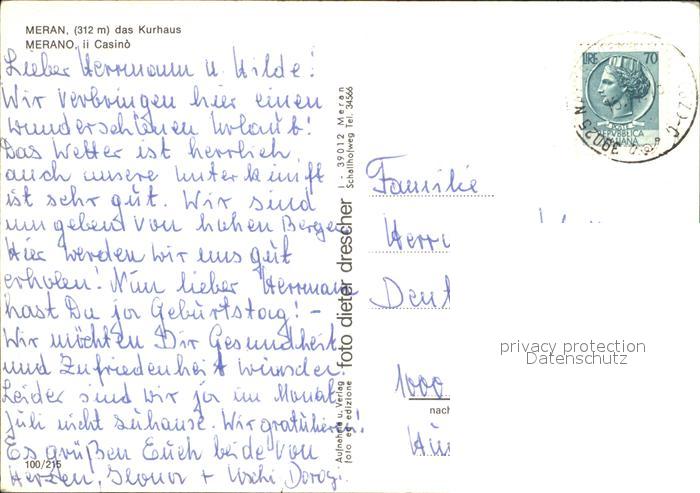 MERAN, (312 m) das Kurhaus
MERANO, ii Casinò
Lieber Herrmann u. Hilde!
Wir verbringen hier einen
wunderschönen Urlaub!
Das Wetter ist herrlich,
auch unsere Unterkunft
ist sehr gut. Wir sind
umgeben von hohen Bergen
Hier werden wir uns gut
erholen! Nun lieber Herrmann
hast Du ja Geburtstag! -
Wir möchten Dir Gesundheit
und Zufriedenheit wünschen.
Leider sind wir ja im Monat
Juli nicht zuhause. Wir gratulieren!
Es grüßen Euch beide von
Herzen, + Uschi
100/215
Aufnahme u. Verlag
foto ed edizione
foto dieter drescher
I - 39012 Meran
Schallhofweg Tel. 34566
LIRE 70
POSTE
REPVBBLICA
ITALIANA
39025
Familie
Herr
1000
nach
privacy protection
Datenschutz